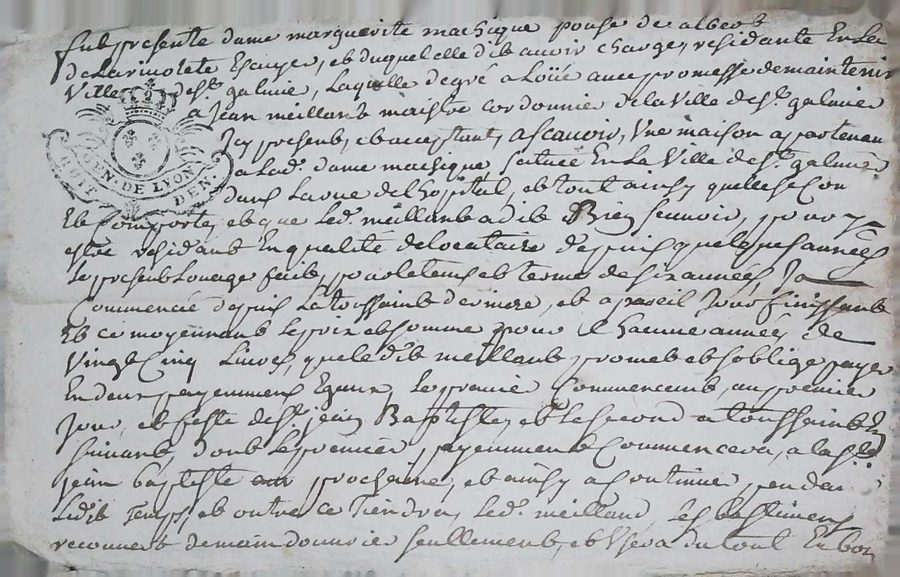 fut presente dame marguerite machique epouse de albert
de Larivolete Escuyer, et duquel elle dit avoir charge, residante En la
Ville de st. galmier, Laquelle de gré a Loüée avec promesse de maintenir
a Jean meillant maistre cordonnier de la Ville de st. galmier
Icy present, et acceptant, a scavoir, Une maison apartenan
a Lad. dame machique scituée En La Ville de st. galmier
dans La rue de lhospital, et tout ainsy quelle se con
Et Comporte, et que Led. meillant a dit Bien scavoir, pour y
estre residant En qualité de locataire depuis quelques années
Le present Louage fait, pour le tems et terme de six années, Ja
Commencé depuis La toussaint derniere, et a pareil Jour finissant
Et ce moyennant Le prix et somme pour Chacune année de
Vingt Cinq Livres, que le dit meillant promet et soblige payer
En deux payemmens Egaux, Le premie Commencent, au premier
Jour, et feste de st. jean Baptiste, et Le second a toussaint En
suivant, dont Le premier payemment Commencera, a la st.
jean baptiste prochaine, et ainsy a continuer, pendant
Ledit Temps, et outre ce Tiendra, Led. meillant Les bastimens
reconvert de main douvrier seullement, et Usera du tout En bon
GEN. DE LYON.
HUIT DEN.